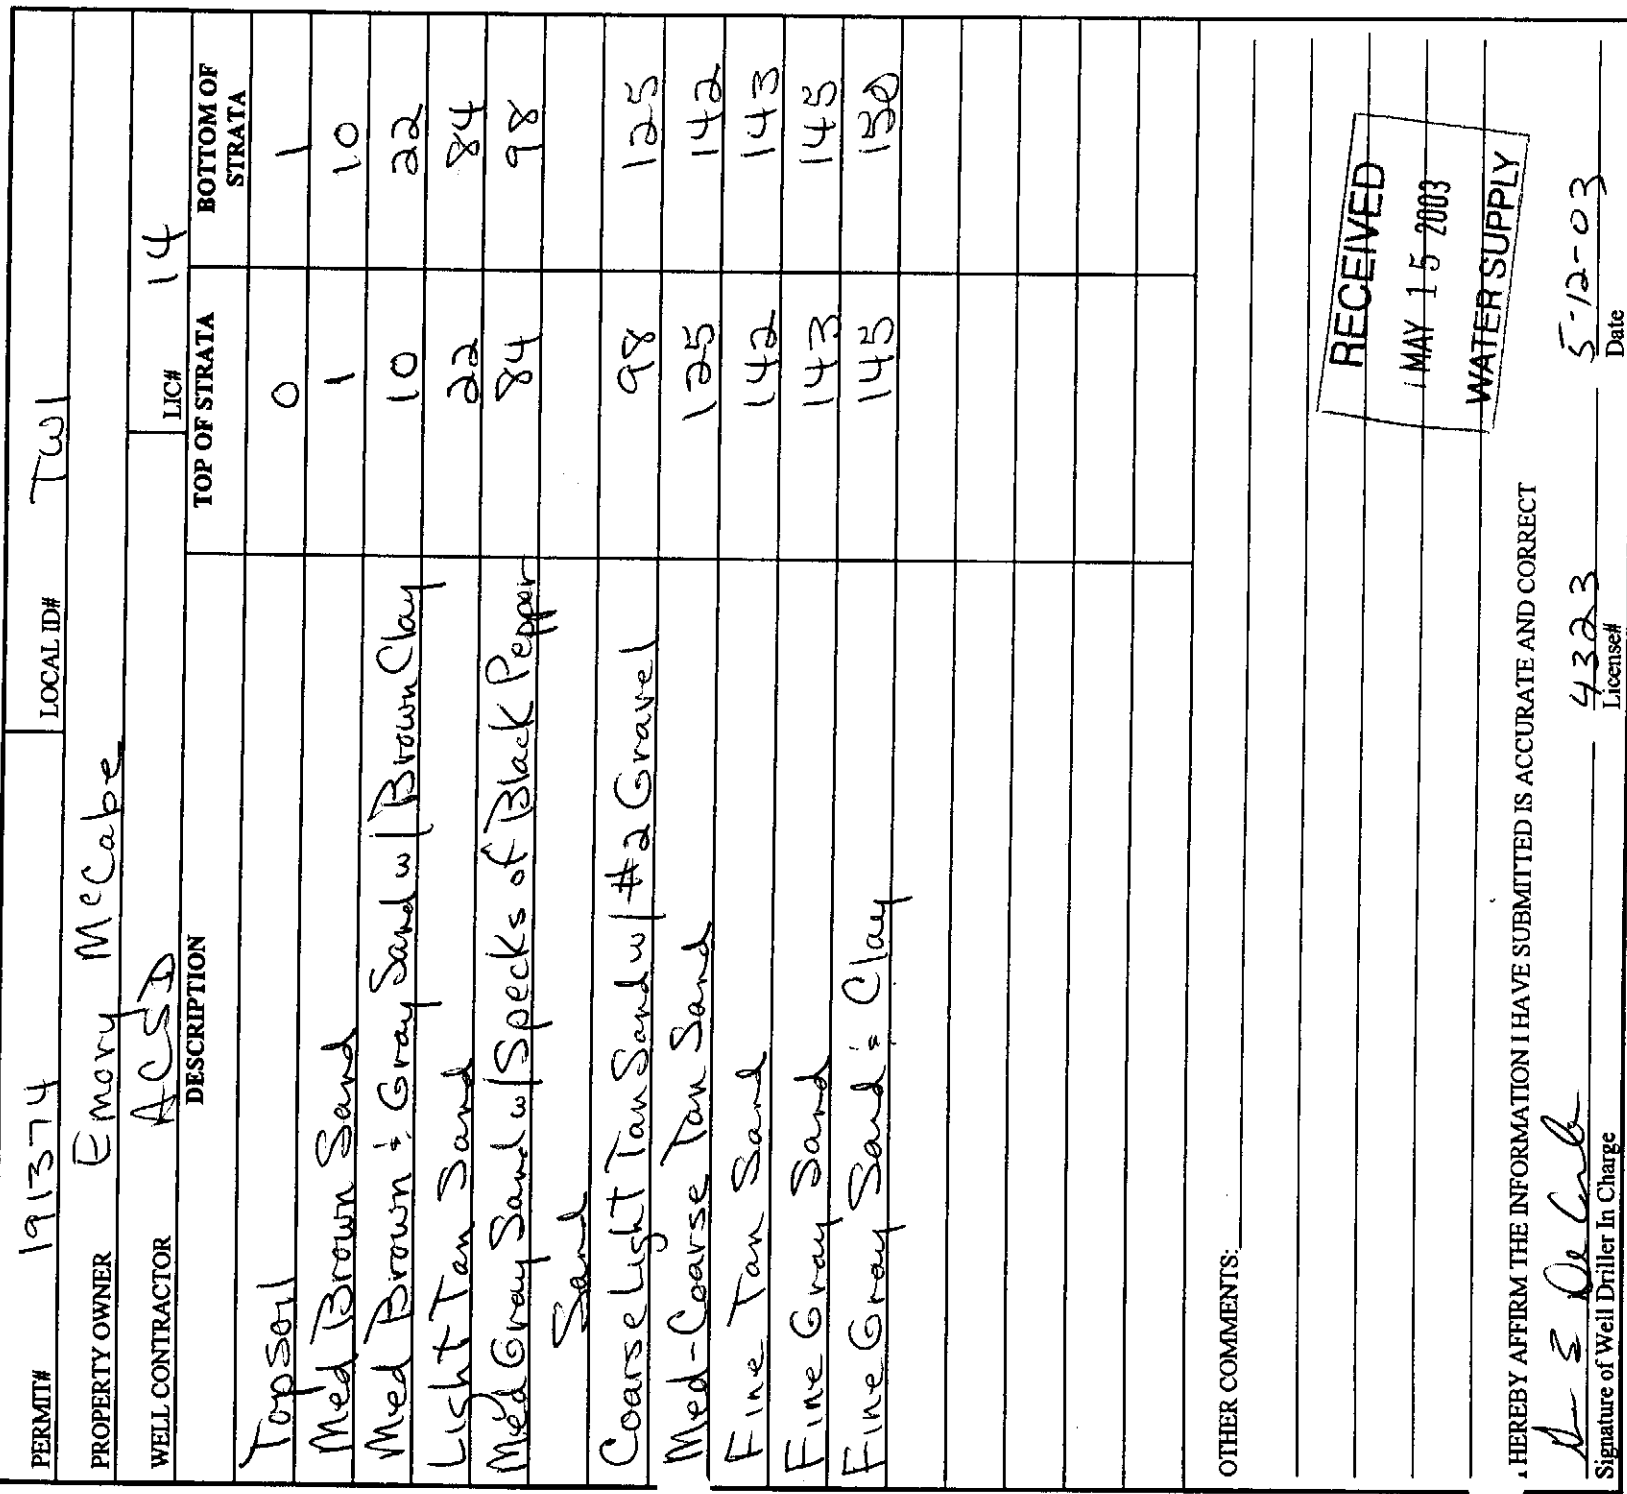 PERMIT# 191374 LOCAL ID# TW1
PROPERTY OWNER Emory McCabe
WELL CONTRACTOR ACSD LIC# 14
DESCRIPTION TOP OF STRATA BOTTOM OF STRATA
Topsoil 0 1
Med Brown Sand 1 10
Med Brown & Gray Sand w/ Brown Clay 10 22
Light Tan Sand 22 84
Med Gray Sand w/ Specks of Black Pepper 84 98
Sand
Coarse Light Tan Sand w/ #2 Gravel 98 125
Med-Coarse Tan Sand 125 142
Fine Tan Sand 142 143
Fine Gray Sand 143 145
Fine Gray Sand & Clay 145 150
OTHER COMMENTS:
RECEIVED
MAY 15 2003
WATER SUPPLY
I HEREBY AFFIRM THE INFORMATION I HAVE SUBMITTED IS ACCURATE AND CORRECT
4323 5-12-03
Signature of Well Driller In Charge License# Date